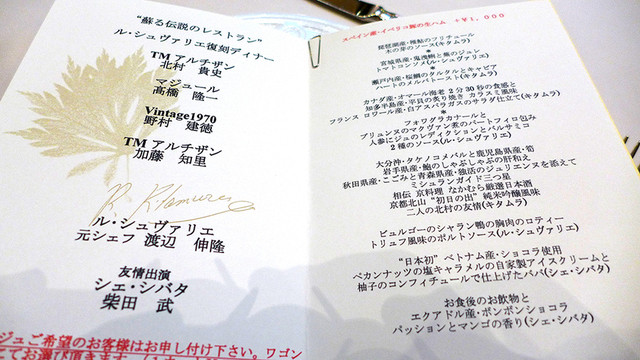 “蘇る伝説のレストラン”
ル・シュヴァリエ復刻ディナー
TM アルチザン
北村 貴史
マジュール
高橋 隆一
Vintage1970
野村 建徳
TM アルチザン
加藤 知里
R. Kitamura
ル・シュヴァリエ
元シェフ 渡辺 伸隆
友情出演
シェ・シバタ
柴田 武
ジュご希望のお客様はお申し付け下さい。ワゴン
にてお選び頂きます。
スペイン産・イベリコ豚の生ハム +¥1,000
琵琶湖産・稚鮎のフリチュール
木の芽のソース(キタムラ)
*
宮城県産・鬼茂樹と蕪のジュレ
トマトコンソメ(ル・シュヴァリエ)
*
瀬戸内産・桜鯛のタルタルとキャビア
ハートのメルバトースト(キタムラ)
*
カナダ産・オマール海老 2分30秒の食感と
知多半島産・平貝の炙り焼き カラスミ風味
フランス ロワール産・白アスパラガスのサラダ仕立て(キタムラ)
*
フォワグラカナールと
プリュンヌのマクヴァン煮のパートフィロ包み
人参にジュのレディクションとバルサミコ
2種のソース(ル・シュヴァリエ)
*
大分沖・タケノコメバルと鹿児島県産・筍
岩手県産・鮑のしゃぶしゃぶの肝和え
秋田県産・こごみと青森県産・独活のジュリエンヌを添えて
ミシュランガイド三つ星
相伝 京料理 なかむら厳選日本酒
京都北山 “初日の出” 純米吟醸風味
二人の北村の友情(キタムラ)
*
ビュルゴーのシャラン鴨の胸肉のロティー
トリュフ風味のポルトソース(ル・シュヴァリエ)
*
“日本初” ベトナム産・ショコラ使用
ペカンナッツの塩キャラメルの自家製アイスクリームと
柚子のコンフィチュールで仕上げたババ(シェ・シバタ)
*
お食後のお飲物と
エクアドル産・ボンボンショコラ
パッションとマンゴの香り(シェ・シバタ)